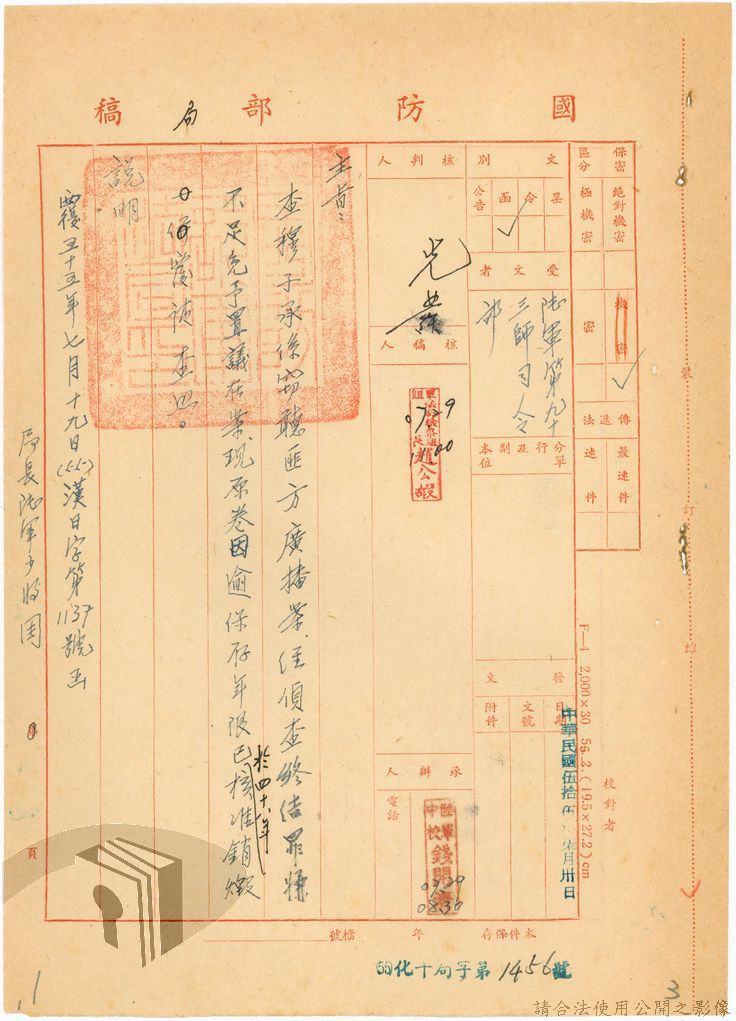 國防部局稿
保密區分
絕對機密
極機密
機密
密
傳遞法
最速件
速件
文別
呈
令
函
公告
受文者
陸軍第九十三師司令部
分行及副本單位
發文
日期
中華民國伍拾伍年柒月卅日
文號
附件
核判人
核稿人
0729
1100
承辦人
電話
0729
0830
主旨：
查穆子承係竊聽匪方廣播案，經偵查終結罪嫌
不足免予置議在案，現原卷因逾保存年限已於四十八年核准銷燬
復請查照。
說明
覆五十五年七月十九日(55)漢日字第1137號函
局長陸軍少將周
頁
校對者
裝
訂
線
F—4 2,000×30 55.2.(19.5×27.2)cm
本件保存 年 檔號
(55)化十旬字第1456號
1
3
請合法使用公開之影像